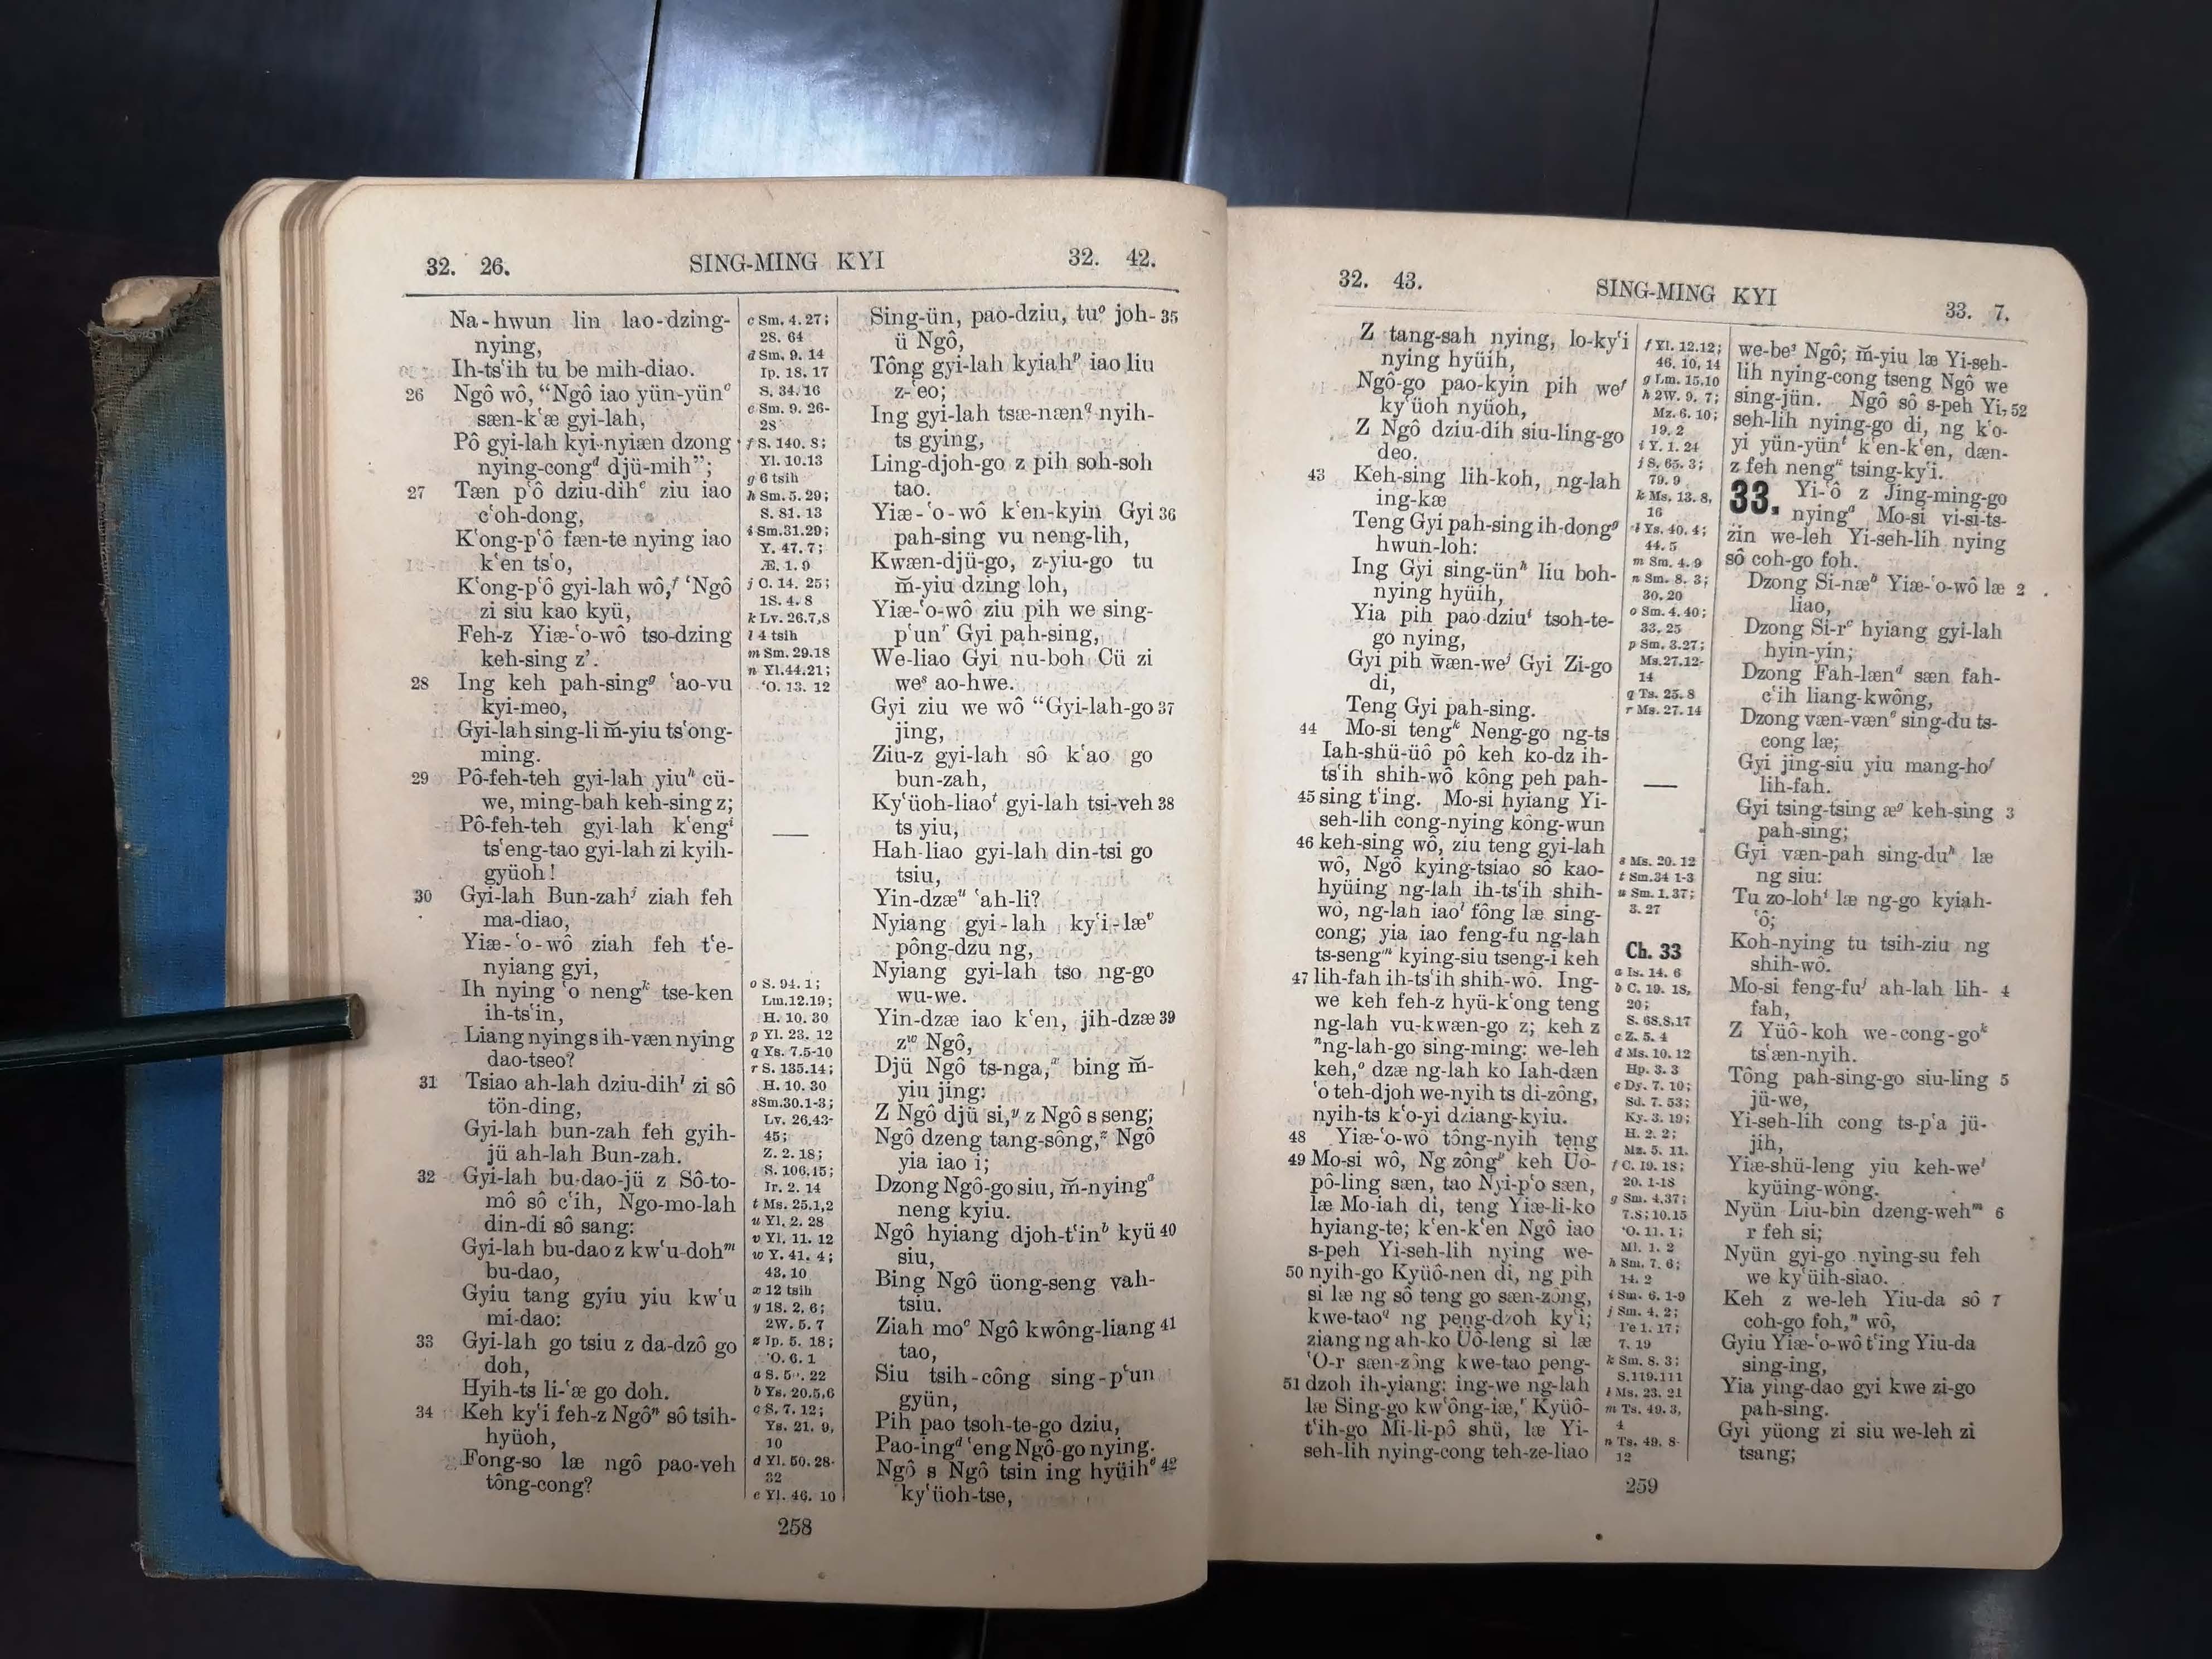 32. 26.
SING-MING KYI
32. 42.
Na-hwun lin lao-dzing-
nying,
Ih-tsʻih tu be mih-diao.
26 Ngô wô, “Ngô iao yün-yünᶜ
sæn-kʻæ gyi-lah,
Pô gyi-lah kyi-nyiæn dzong
nying-congᵈ djü-mih”;
27 Tæn pʻô dziu-dihᵉ ziu iao
cʻoh-dong,
Kʻong-pʻô fæn-te nying iao
kʻen tsʻo,
Kʻong-pʻô gyi-lah wô,ᶠ ‘Ngô
zi siu kao kyü,
Feh-z Yiæ-ʻo-wô tso-dzing
keh-sing z’.
28 Ing keh pah-singᵍ ʻao-vu
kyi-meo,
Gyi-lah sing-li m̆-yiu tsʻong-
ming.
29 Pô-feh-teh gyi-lah yiuʰ cü-
we, ming-bah keh-sing z;
Pô-feh-teh gyi-lah kʻengⁱ
tsʻeng-tao gyi-lah zi kyih-
gyüoh!
30 Gyi-lah Bun-zahʲ ziah feh
ma-diao,
Yiæ-ʻo-wô ziah feh tʻe-
nyiang gyi,
Ih nying ʻo nengᵏ tse-ken
ih-tsʻin,
Liang nying s ih-væn nying
dao-tseo?
31 Tsiao ah-lah dziu-dihˡ zi sô
tön-ding,
Gyi-lah bun-zah feh gyih-
jü ah-lah Bun-zah.
32 Gyi-lah bu-dao-jü z Sô-to-
mô sô cʻih, Ngo-mo-lah
din-di sô sang:
Gyi-lah bu-dao z kwʻu-dohᵐ
bu-dao,
Gyiu tang gyiu yiu kwʻu
mi-dao:
33 Gyi-lah go tsiu z da-dzô go
doh,
Hyih-ts li-ʻæ go doh.
34 Keh kyʻi feh-z Ngôⁿ sô tsih-
hyüoh,
Fong-so læ ngô pao-veh
tông-cong?
c Sm. 4. 27;
28. 64
d Sm. 9. 14
Ip. 18. 17
S. 34. 16
e Sm. 9. 26-
28
f S. 140. 8;
Yl. 10.13
g 6 tsih
h Sm. 5. 29;
S. 81. 13
i Sm.31.29;
Y. 47. 7;
Æ. 1. 9
j C. 14. 25;
1S. 4. 8
k Lv. 26.7,8
l 4 tsih
m Sm. 29.18
n Yl.44.21;
ʻO. 13. 12
o S. 94. 1;
Lm.12.19;
H. 10. 30
p Yl. 23. 12
q Ys. 7.5-10
r S. 135.14;
H. 10. 30
s Sm.30.1-3;
Lv. 26.43-
45;
Z. 2. 18;
S. 106.45;
Ir. 2. 14
t Ms. 25.1,2
u Yl. 2. 28
v Yl. 11. 12
w Y. 41. 4;
43. 10
x 12 tsih
y 1S. 2. 6;
2W. 5. 7
z Ip. 5. 18;
ʻO. 6. 1
b Ys. 20.5,6
c S. 7. 12;
Ys. 21. 9,
10
d Yl. 50. 28-
32
e Yl. 46. 10
Sing-ün, pao-dziu, tuᵒ joh- 35
ü Ngô,
Tông gyi-lah kyiahᵖ iao liu
z-ʻeo;
Ing gyi-lah tsæ-næn𐞥 nyih-
ts gying,
Ling-djoh-go z pih soh-soh
tao.
Yiæ-ʻo-wô kʻen-kyin Gyi 36
pah-sing vu neng-lih,
Kwæn-djü-go, z-yiu-go tu
m̆-yiu dzing loh,
Yiæ-ʻo-wô ziu pih we sing-
pʻunʳ Gyi pah-sing,
We-liao Gyi nu-boh Cü zi
weˢ ao-hwe.
Gyi ziu we wô “Gyi-lah-go 37
jing,
Ziu-z gyi-lah sô kʻao go
bun-zah,
Kyʻüoh-liaoᵗ gyi-lah tsi-veh 38
ts yiu,
Hah-liao gyi-lah din-tsi go
tsiu,
Yin-dzæᵘ ʻah-li?
Nyiang gyi-lah kyʻi-læᵛ
pông-dzu ng,
Nyiang gyi-lah tso ng-go
wu-we.
Yin-dzæ iao kʻen, jih-dzæ 39
zʷ Ngô,
Djü Ngô ts-nga,ˣ bing m̆-
yiu jing:
Z Ngô djü si,ʸ z Ngô s seng;
Ngô dzeng tang-sông,ᶻ Ngô
yia iao i;
Dzong Ngô-go siu, m̆-nyingᵃ
neng kyiu.
Ngô hyiang djoh-tʻinᵇ kyü 40
siu,
Bing Ngô üong-seng vah-
tsiu.
Ziah moᶜ Ngô kwông-liang 41
tao,
Siu tsih-công sing-pʻun
gyün,
Pih pao tsoh-te-go dziu,
Pao-ingᵈ ʻeng Ngô-go nying.
Ngô s Ngô tsin ing hyüihᵉ 42
kyʻüoh-tse,
258
32. 43.
SING-MING KYI
33. 7.
Z tang-sah nying, lo-kyʻi
nying hyüih,
Ngô-go pao-kyin pih weᶠ
kyʻüoh nyüoh,
Z Ngô dziu-dih siu-ling-go
deo.
43 Keh-sing lih-koh, ng-lah
ing-kæ
Teng Gyi pah-sing ih-dongᵍ
hwun-loh:
Ing Gyi sing-ünʰ liu boh-
nying hyüih,
Yia pih pao dziuⁱ tsoh-te-
go nying,
Gyi pih w̆æn-weʲ Gyi Zi-go
di,
Teng Gyi pah-sing.
44 Mo-si tengᵏ Neng-go ng-ts
Iah-shü-üô pô keh ko-dz ih-
tsʻih shih-wô kông peh pah-
45 sing tʻing. Mo-si hyiang Yi-
seh-lih cong-nying kông-wun
46 keh-sing wô, ziu teng gyi-lah
wô, Ngô kying-tsiao sô kao-
hyüing ng-lah ih-tsʻih shih-
wô, ng-lah iaoˡ fông læ sing-
cong; yia iao feng-fu ng-lah
ts-sengᵐ kying-siu tseng-i keh
47 lih-fah ih-tsʻih shih-wô. Ing-
we keh feh-z hyü-kʻong teng
ng-lah vu-kwæn-go z; keh z
ⁿng-lah-go sing-ming: we-leh
keh,ᵒ dzæ ng-lah ko Iah-dæn
ʻo teh-djoh we-nyih ts di-zông,
nyih-ts kʻo-yi dziang-kyiu.
48 Yiæ-ʻo-wô tông-nyih teng
49 Mo-si wô, Ng zôngᵖ keh Üo-
pô-ling sæn, tao Nyi-pʻo sæn,
læ Mo-iah di, teng Yiæ-li-ko
hyiang-te; kʻen-kʻen Ngô iao
s-peh Yi-seh-lih nying we-
50 nyih-go Kyüô-nen di, ng pih
si læ ng sô teng go sæn-zông,
kwe-tao𐞥 ng peng-dzoh kyʻi;
ziang ng ah-ko Üô-leng si læ
ʻO-r sæn-zông kwe-tao peng-
51 dzoh ih-yiang: ing-we ng-lah
læ Sing-go kwʻông-iæ,ʳ Kyüô-
tʻih-go Mi-li-pô shü, læ Yi-
seh-lih nying-cong teh-ze-liao
f Yl. 12.12;
46. 10, 14
g Lm. 15.10
h 2W. 9. 7;
Mz. 6. 10;
19. 2
i Y. 1. 24
j S. 65. 3;
79. 9
k Ms. 13. 8,
16
l Ys. 40. 4;
44. 5
m Sm. 4. 9
n Sm. 8. 3;
30. 20
o Sm. 4. 40;
33. 25
p Sm. 3.27;
Ms.27.12-
14
q Ts. 25. 8
r Ms. 27. 14
s Ms. 20. 12
t Sm.34 1-3
u Sm. 1.37;
3. 27
Ch. 33
a Is. 14. 6
b C. 19. 18,
20;
S. 68.8,17
c Z. 5. 4
d Ms. 10. 12
Hp. 3. 3
e Dy. 7. 10;
Sd. 7. 53;
Ky. 3. 19;
H. 2. 2;
Mz. 5. 11.
f C. 19. 18;
20. 1-18
g Sm. 4.37;
7.8; 10.15
ʻO. 11. 1;
Ml. 1. 2
h Sm. 7. 6;
14. 2
i Sm. 6. 1-9
j Sm. 4. 2;
1. 17;
7. 19
k Sm. 8. 3;
S.119.111
l Ms. 23. 21
m Ts. 49. 3,
4
n Ts. 49. 8-
12
we-beˢ Ngô; m̆-yiu læ Yi-seh-
lih nying-cong tseng Ngô we
sing-jün. Ngô sô s-peh Yi- 52
seh-lih nying-go di, ng kʻo-
yi yün-yünᵗ kʻen-kʻen, dæn-
z feh nengᵘ tsing-kyʻi.
33. Yi-ʻô z Jing-ming-go
nyingᵃ Mo-si vi-si-ts-
zin we-leh Yi-seh-lih nying
sô coh-go foh.
Dzong Si-næᵇ Yiæ-ʻo-wô læ 2
liao,
Dzong Si-rᶜ hyiang gyi-lah
hyin-yin;
Dzong Fah-lænᵈ sæn fah-
cʻih liang-kwông,
Dzong væn-vænᵉ sing-du ts-
cong læ;
Gyi jing-siu yiu mang-hoᶠ
lih-fah.
Gyi tsing-tsing æᵍ keh-sing 3
pah-sing;
Gyi væn-pah sing-duʰ læ
ng siu:
Tu zo-lohⁱ læ ng-go kyiah-
ʻô;
Koh-nying tu tsih-ziu ng
shih-wô.
Mo-si feng-fuʲ ah-lah lih- 4
fah,
Z Yüô-koh we-cong-goᵏ
tsʻæn-nyih.
Tông pah-sing-go siu-ling 5
jü-we,
Yi-seh-lih cong ts-pʻa jü-
jih,
Yiæ-shü-leng yiu keh-weˡ
kyüing-wông.
Nyün Liu-bin dzeng-wehᵐ 6
r feh si;
Nyün gyi-go nying-su feh
we kyʻüih-siao.
Keh z we-leh Yiu-da sô 7
coh-go foh,ⁿ wô,
Gyiu Yiæ-ʻo-wô tʻing Yiu-da
sing-ing,
Yia ying-dao gyi kwe zi-go
pah-sing.
Gyi yüong zi siu we-leh zi
tsang;
259